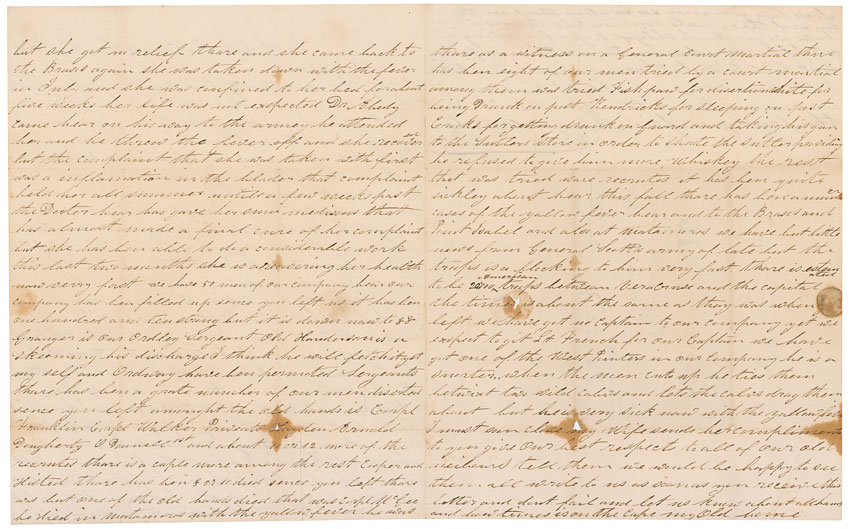 but she got no relief thare and she came back to
the Brases again she was taken down with the fever
in July and she was confined to her bed for about
five weeks her life was not expected Dr
came hear on his way to the armey he attended
her and he threw the fever off and she recoverd
but the complaint that she was taken with first
was a inflamation in the blader that complaint
held her all summer untill a few weeks past
the Doctor hear has gave her sum medisins that
has almost made a final cure of her complaint
but she has ben able to do a considerable work
this last two months she is recovering her health
now verry fast we have 51 men of our company hear our
company has ben filled up sence you left us it has ben
one hundred and ten strong but it is down now to 88
Granger is our Ordley Sergeant Old Handerson is a
skeeming his discharge I think he will fetch it yet
my self and Ordway have ben permoted Sergeants
thare has ben a grate number of our men diserted
sence you left amongst the old hands is Corpl
Franklin Corpl Walker Privates Arnold
Dougherty O Donnell 1st and about 10 or 12 more of the
recruites there is a cuple more among the rest Cooper and
Histed thare has ben 8 or 10 died sence you left thare
was but one of the old hands died that was Corpl
he died in Matamoras with the yallow fever he was
thare as a witness on a General Court Martial thare
has ben eight of our men tried by a court martial
among them was tried Fishpaw for disertion for
being Drunk on post Hendricks for sleeping on post
for getting drunk on Guard and taking his gun
to the Sutlers Store in order to shoote the Sutler providing
he refused to give him more whiskey the rest
that was tried ware recruits it has ben quite
sickley about hear this fall thare has ben a number
cases of the yallow fever hear and to the Brases and
Point Isabel and also at Matamoras we have but little
news from General Scotts army of late but the
troops is a flocking to him very fast thare is
to be American troops between Veracruse and the capital
the times is about the same as thay was when you
left we have got no captain to our company yet we
expect to git Lt French for our Captain we have
got one of the West Pointers in our Company he is a
snorter when the men cuts up he ties them
betwixt two wild calves and lets the calves drag them
about but he is very sick now with the yallow fever
I must sun close my Wife sends her compliments
to you give Our best respects to all of our old
tell them we would be happy to see
them all write to us as soon as you receive this
letter and dont fail and let us know about all hands
and how times is on the Cape my Old home